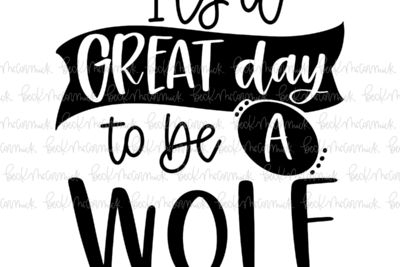 It's a
GREAT day
to be A
WOLF